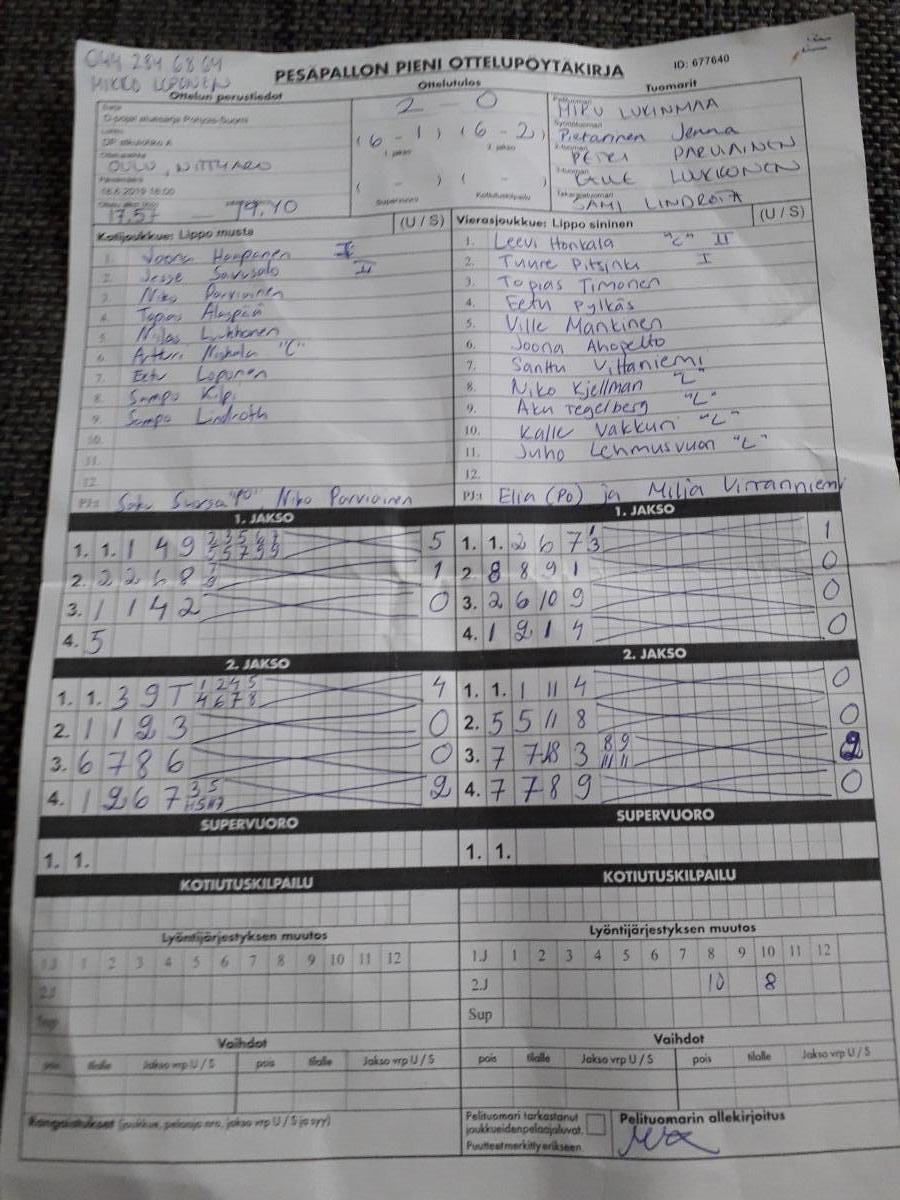 044 284 6864
MIKKO LOPONEN
PESÄPALLON PIENI OTTELUPÖYTÄKIRJA
ID: 677640
Ottelun perustiedot
Ottelutulos
Tuomarit
Sarja
D-pojat aluesarja Pohjois-Suomi
2 - 0
(6 - 1) (6 - 2)
1. jakso
2. jakso
( - ) ( - )
Supervuoro
Kotiutuskilpailu
OULU,
18.6.2019 18:00
17.57 - 19.40
Pelituomari
MIRU LUKINMAA
Syöttötuomari
Pietarinen Jenna
PETRI PARVIAINEN
LUKKONEN
Takarajatuomari
SAMI LINDROTH
Kotijoukkue: Lippo musta (U / S)
1. Joona Haapanen I
2. Jesse Savusalo II
3. Niko Parviainen
4. Topias Alaspää
5. Niilas Lukkonen
6. Artturi Niskala "C"
7. Eetu Loponen
8. Sampo Kilpi
9. Sampo Lindroth
10.
11.
12.
PJ:t Saku Suorsa "PO" Niko Parviainen
Vierasjoukkue: Lippo sininen (U / S)
1. Leevi Honkala "C" II
2. Tuure Pitsinki I
3. Topias Timonen
4. Eetu Pylkäs
5. Ville Mankinen
6. Joona Ahopelto
7. Santtu Viitaniemi
8. Niko Kjellman "L"
9. Aku Tegelberg "L"
10. Kalle Vakkuri "L"
11. Juho Lehmusvuori "L"
12.
PJ:t Elia (PO) ja Milja Virranniemi
1. JAKSO
1. 1. 1 4 9 2 3 5 6 7 5
5 5 7 9 9
2. 2 2 6 8 7 1
9
3. 1 1 4 2 0
4. 5
1. JAKSO
1. 1. 2 6 7 1 1
3
2. 8 8 9 1 0
3. 2 6 10 9 0
4. 1 2 1 4 0
2. JAKSO
1. 1. 3 9 T 1 2 4 5 4
4 6 7 8
2. 1 1 2 3 0
3. 6 7 8 6 0
4. 1 2 6 7 3 5 2
2. JAKSO
1. 1. 1 11 4 0
2. 5 5 11 8 0
3. 7 7 3 8 9 2
11 11
4. 7 7 8 9 0
SUPERVUORO
1. 1.
SUPERVUORO
1. 1.
KOTIUTUSKILPAILU
KOTIUTUSKILPAILU
Lyöntijärjestyksen muutos
1.J 1 2 3 4 5 6 7 8 9 10 11 12
2.J
Sup
Lyöntijärjestyksen muutos
1.J 1 2 3 4 5 6 7 8 9 10 11 12
2.J 10 8
Sup
Vaihdot
pois tilalle Jakso vrp U / S pois tilalle Jakso vrp U / S
Vaihdot
pois tilalle Jakso vrp U / S pois tilalle Jakso vrp U / S
Rangaistukset (joukkue, pelaaja nro, jakso vrp U / S ja syy)
Pelituomari tarkastanut
joukkueidenpelaajaluvat.
Puutteet merkitty erikseen
Pelituomarin allekirjoitus